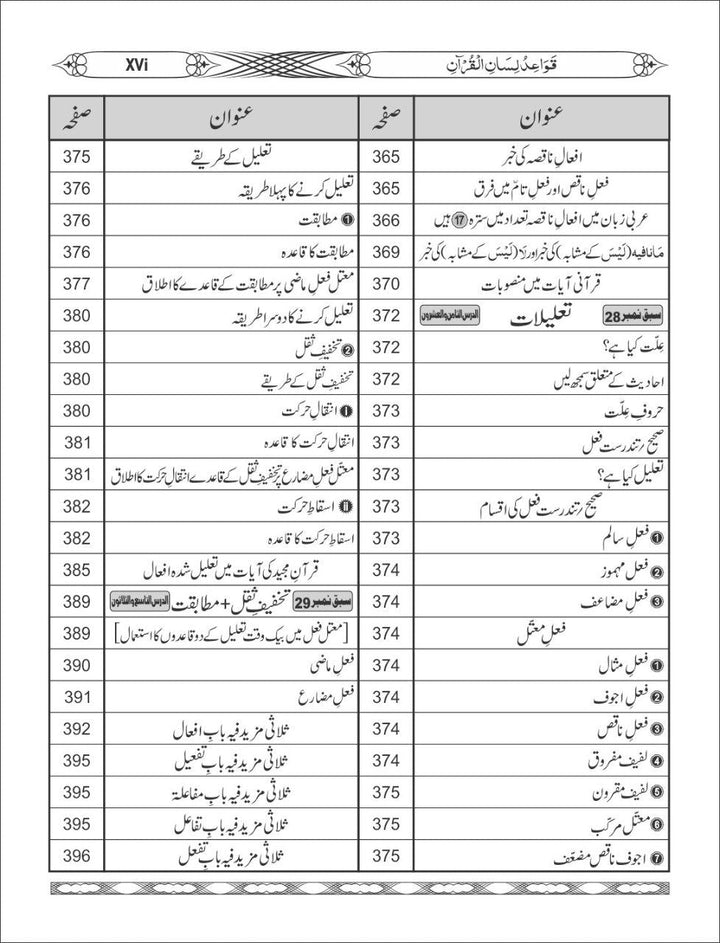 قَوَاعِدُ لِسَانِ الْقُرْآنِ XVi
عنوان صفحہ عنوان صفحہ
افعالِ ناقصہ کی خبر 365
فعلِ ناقص اور فعلِ تامّ میں فرق 365
عربی زبان میں افعالِ ناقصہ تعداد میں سترہ ⑰ ہیں 366
مَا نافیہ (لَيْسَ کے مشابہ) کی خبر اور لَا (لَيْسَ کے مشابہ) کی خبر 369
قرآنی آیات میں منصوبات 370
سبق نمبر 28 تعلیلات الدرس الثامن والعشرون 372
عِلّت کیا ہے؟ 372
احادیث کے متعلق سمجھ لیں 372
حروفِ عِلّت 373
صحیح / تندرست فعل 373
تعلیل کیا ہے؟ 373
صحیح / تندرست فعل کی اقسام 373
❶ فعلِ سالم 373
❷ فعلِ مہموز 374
❸ فعلِ مضاعف 374
فعلِ معتل 374
❶ فعلِ مثال 374
❷ فعلِ اجوف 374
❸ فعلِ ناقص 374
❹ لفیف مفروق 374
❺ لفیف مقرون 375
❻ معتل مرکب 375
❼ اجوف ناقص مضعّف 375
تعلیل کے طریقے 375
تعلیل کرنے کا پہلا طریقہ 376
❶ مطابقت 376
مطابقت کا قاعدہ 376
معتل فعلِ ماضی پر مطابقت کے قاعدے کا اطلاق 377
تعلیل کرنے کا دوسرا طریقہ 380
❷ تخفیفِ ثقل 380
تخفیفِ ثقل کے طریقے 380
ⅰ انتقالِ حرکت 380
انتقالِ حرکت کا قاعدہ 381
معتل فعلِ مضارع پر تخفیفِ ثقل کے قاعدے انتقالِ حرکت کا اطلاق 381
ⅱ اسقاطِ حرکت 382
اسقاطِ حرکت کا قاعدہ 382
قرآنِ مجید کی آیات میں تعلیل شدہ افعال 385
سبق نمبر 29 تخفیفِ ثقل + مطابقت الدرس التاسع والثلاثون 389
[معتل فعل میں بیک وقت تعلیل کے دو قاعدوں کا استعمال] 389
فعلِ ماضی 390
فعلِ مضارع 391
ثلاثی مزید فیہ بابِ افعال 392
ثلاثی مزید فیہ بابِ تفعیل 395
ثلاثی مزید فیہ بابِ مفاعلۃ 395
ثلاثی مزید فیہ بابِ تفاعل 395
ثلاثی مزید فیہ بابِ تفعل 396